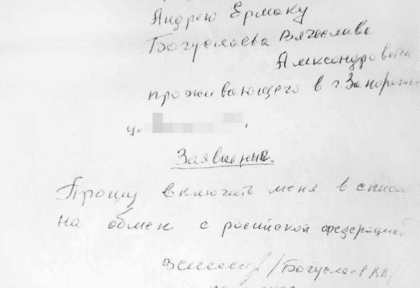 Андрею Ермаку
Богуслаева Вячеслава
Александровича
проживающего в г. Запорож
ул
Заявление.
Прошу включить меня в список
на обмен с российской федерацией
/Богуслаев